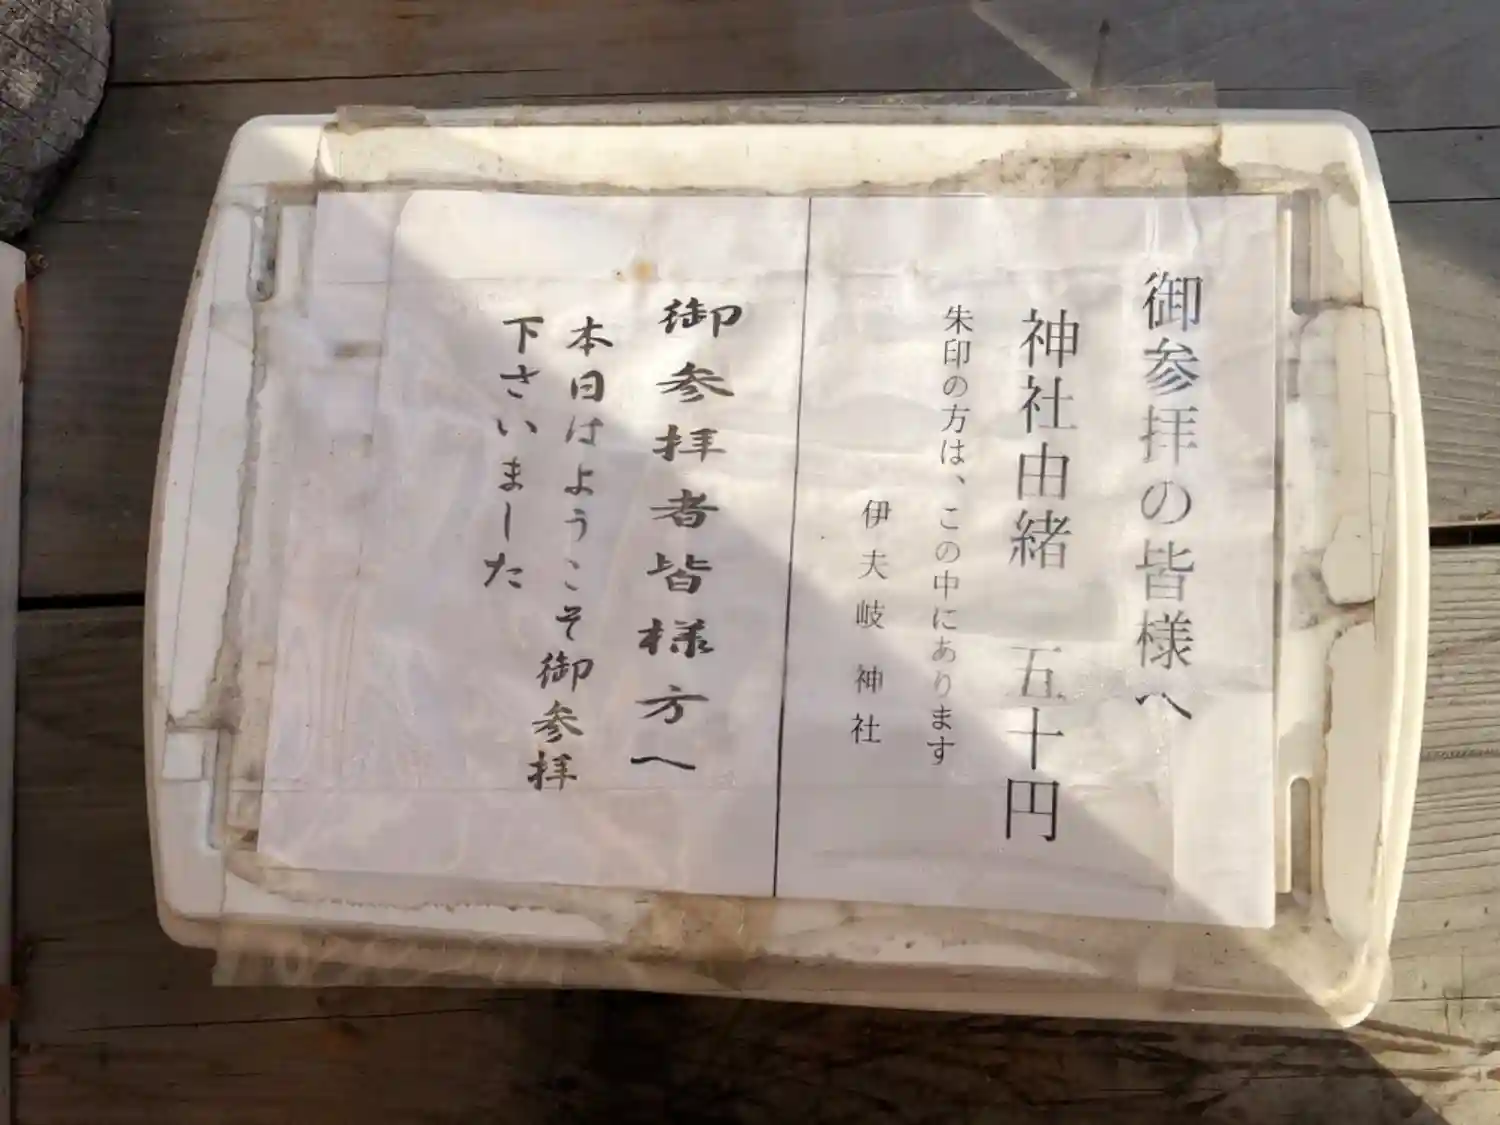 御参拝の皆様へ
神社由緒　五十円
朱印の方は、この中にあります
伊夫岐神社
御参拝者皆様方へ
本日はようこそ御参拝
下さいました